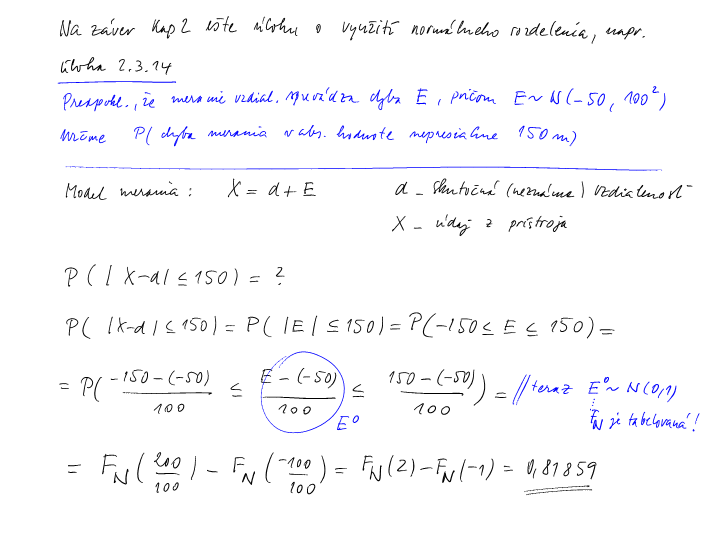 Na záver Kap 2 ešte úlohu o využití normálneho rozdelenia, napr.
Úloha 2.3.14
Predpokl., že meranie vzdial. sprevádza chyba E, pričom E ~ N(-50, 100²)
Určme P( chyba merania v abs. hodnote nepresiahne 150 m)
Model merania : X = d + E d - skutočná (neznáma) vzdialenosť
X - údaj z prístroja
P( | X-d| ≤ 150 ) = ?
P( |X-d| ≤ 150 ) = P( |E| ≤ 150 ) = P(-150 ≤ E ≤ 150) =
= P( -150-(-50) / 100 ≤ E-(-50) / 100 ≤ 150-(-50) / 100 ) = // teraz E⁰ ~ N(0,1)
E⁰ F_N je tabelovaná!
= F_N( 200/100 ) - F_N( -100/100 ) = F_N(2) - F_N(-1) = 0,81859